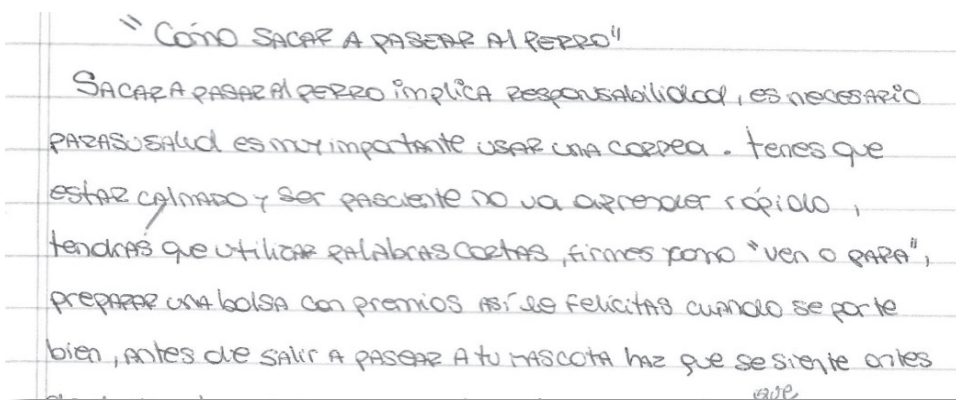 "Cómo SACAR A PASEAR Al PERRO"
SACAR A PASAR Al PERRO implica Responsabilidad, es necesario
PARA SU SAlud es muy importante USAR UNA CORREA. tenes que
estAR CAlMADO y Ser PASciente no va aprender rápido,
tendrás que utilizar PAlAbRAS CORTAS, firmes como "ven o PARA",
prepARAR UNA bolsa con premios ASí le felicitAs cuando se porte
bien, Antes de SAlir A PASEAR A tu MASCOTA haz que se siente antes
que